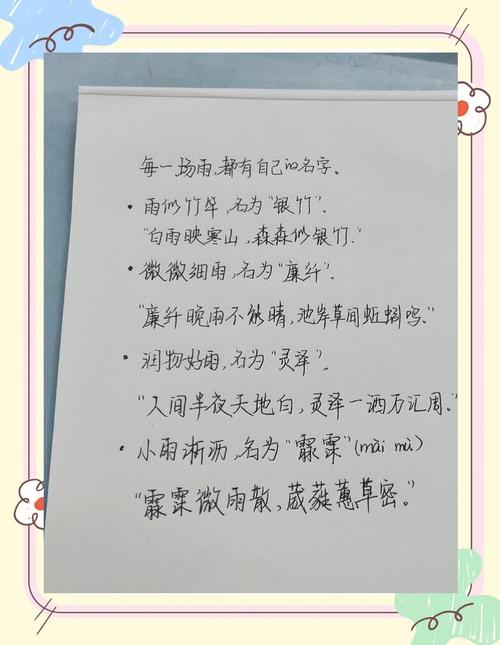 每一场雨,都有自己的名字。
· 雨似竹竿,名为"银竹".
"白雨映寒山,森森似银竹."
· 微微细雨,名为"廉纤".
"廉纤晚雨不能晴,池岸草间蚯蚓鸣."
· 润物好雨,名为"灵泽".
"人间半夜天地白,灵泽一洒万汇周."
· 小雨淅沥,名为"霡霂"(mài mù)
"霡霂微雨散,葳蕤蕙草密."